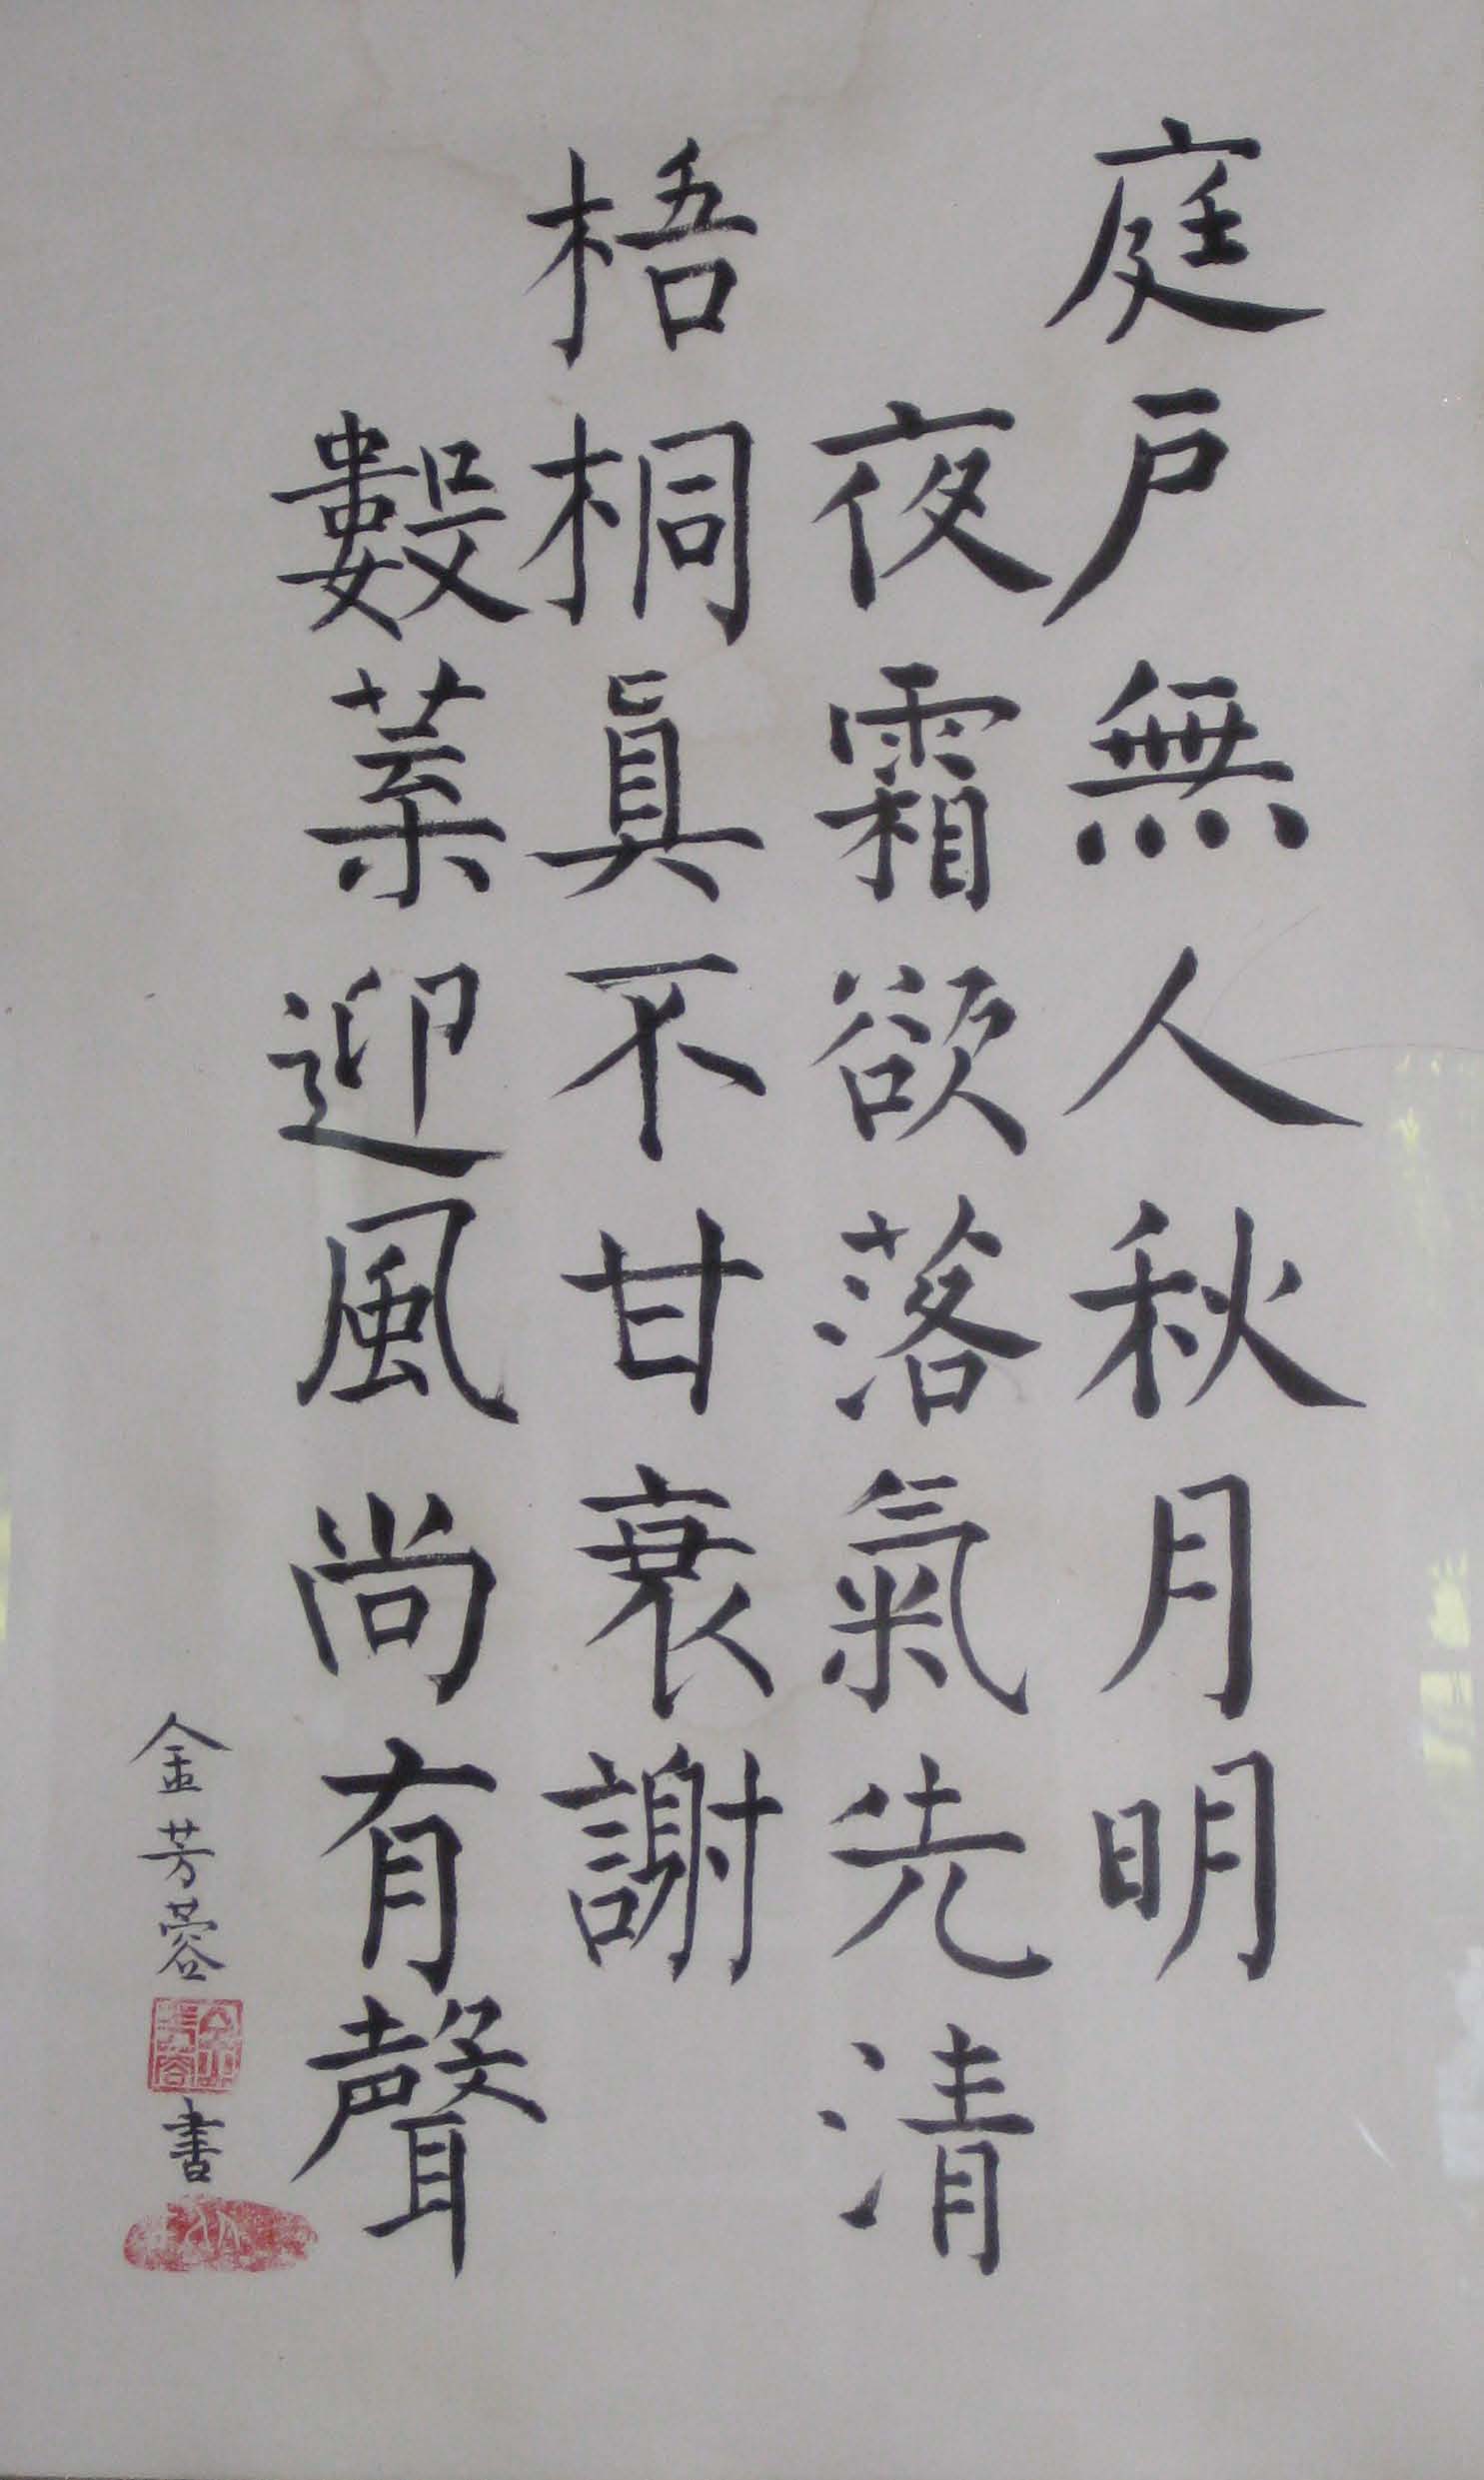 庭戶無人秋月明
夜霜欲落氣先清
梧桐真不甘衰謝
數葉迎風尚有聲
金芳蓉
書